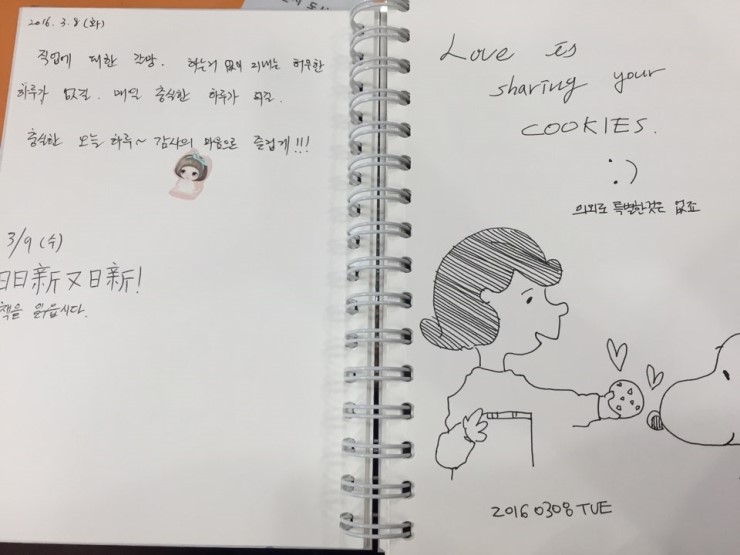 2016. 3. 8 (화)
직업에 대한 갈망. 하는거 없이 지내는 허무한
하루가 없길. 매일 충실한 하루가 되길.
충실한 오늘 하루~ 감사의 마음으로 즐겁게!!!
3/9 (수)
日日新又日新!
책을 읽읍시다.
Love is
sharing your
COOKIES.
:)
의외로 특별한것은 없죠
20160308 TUE